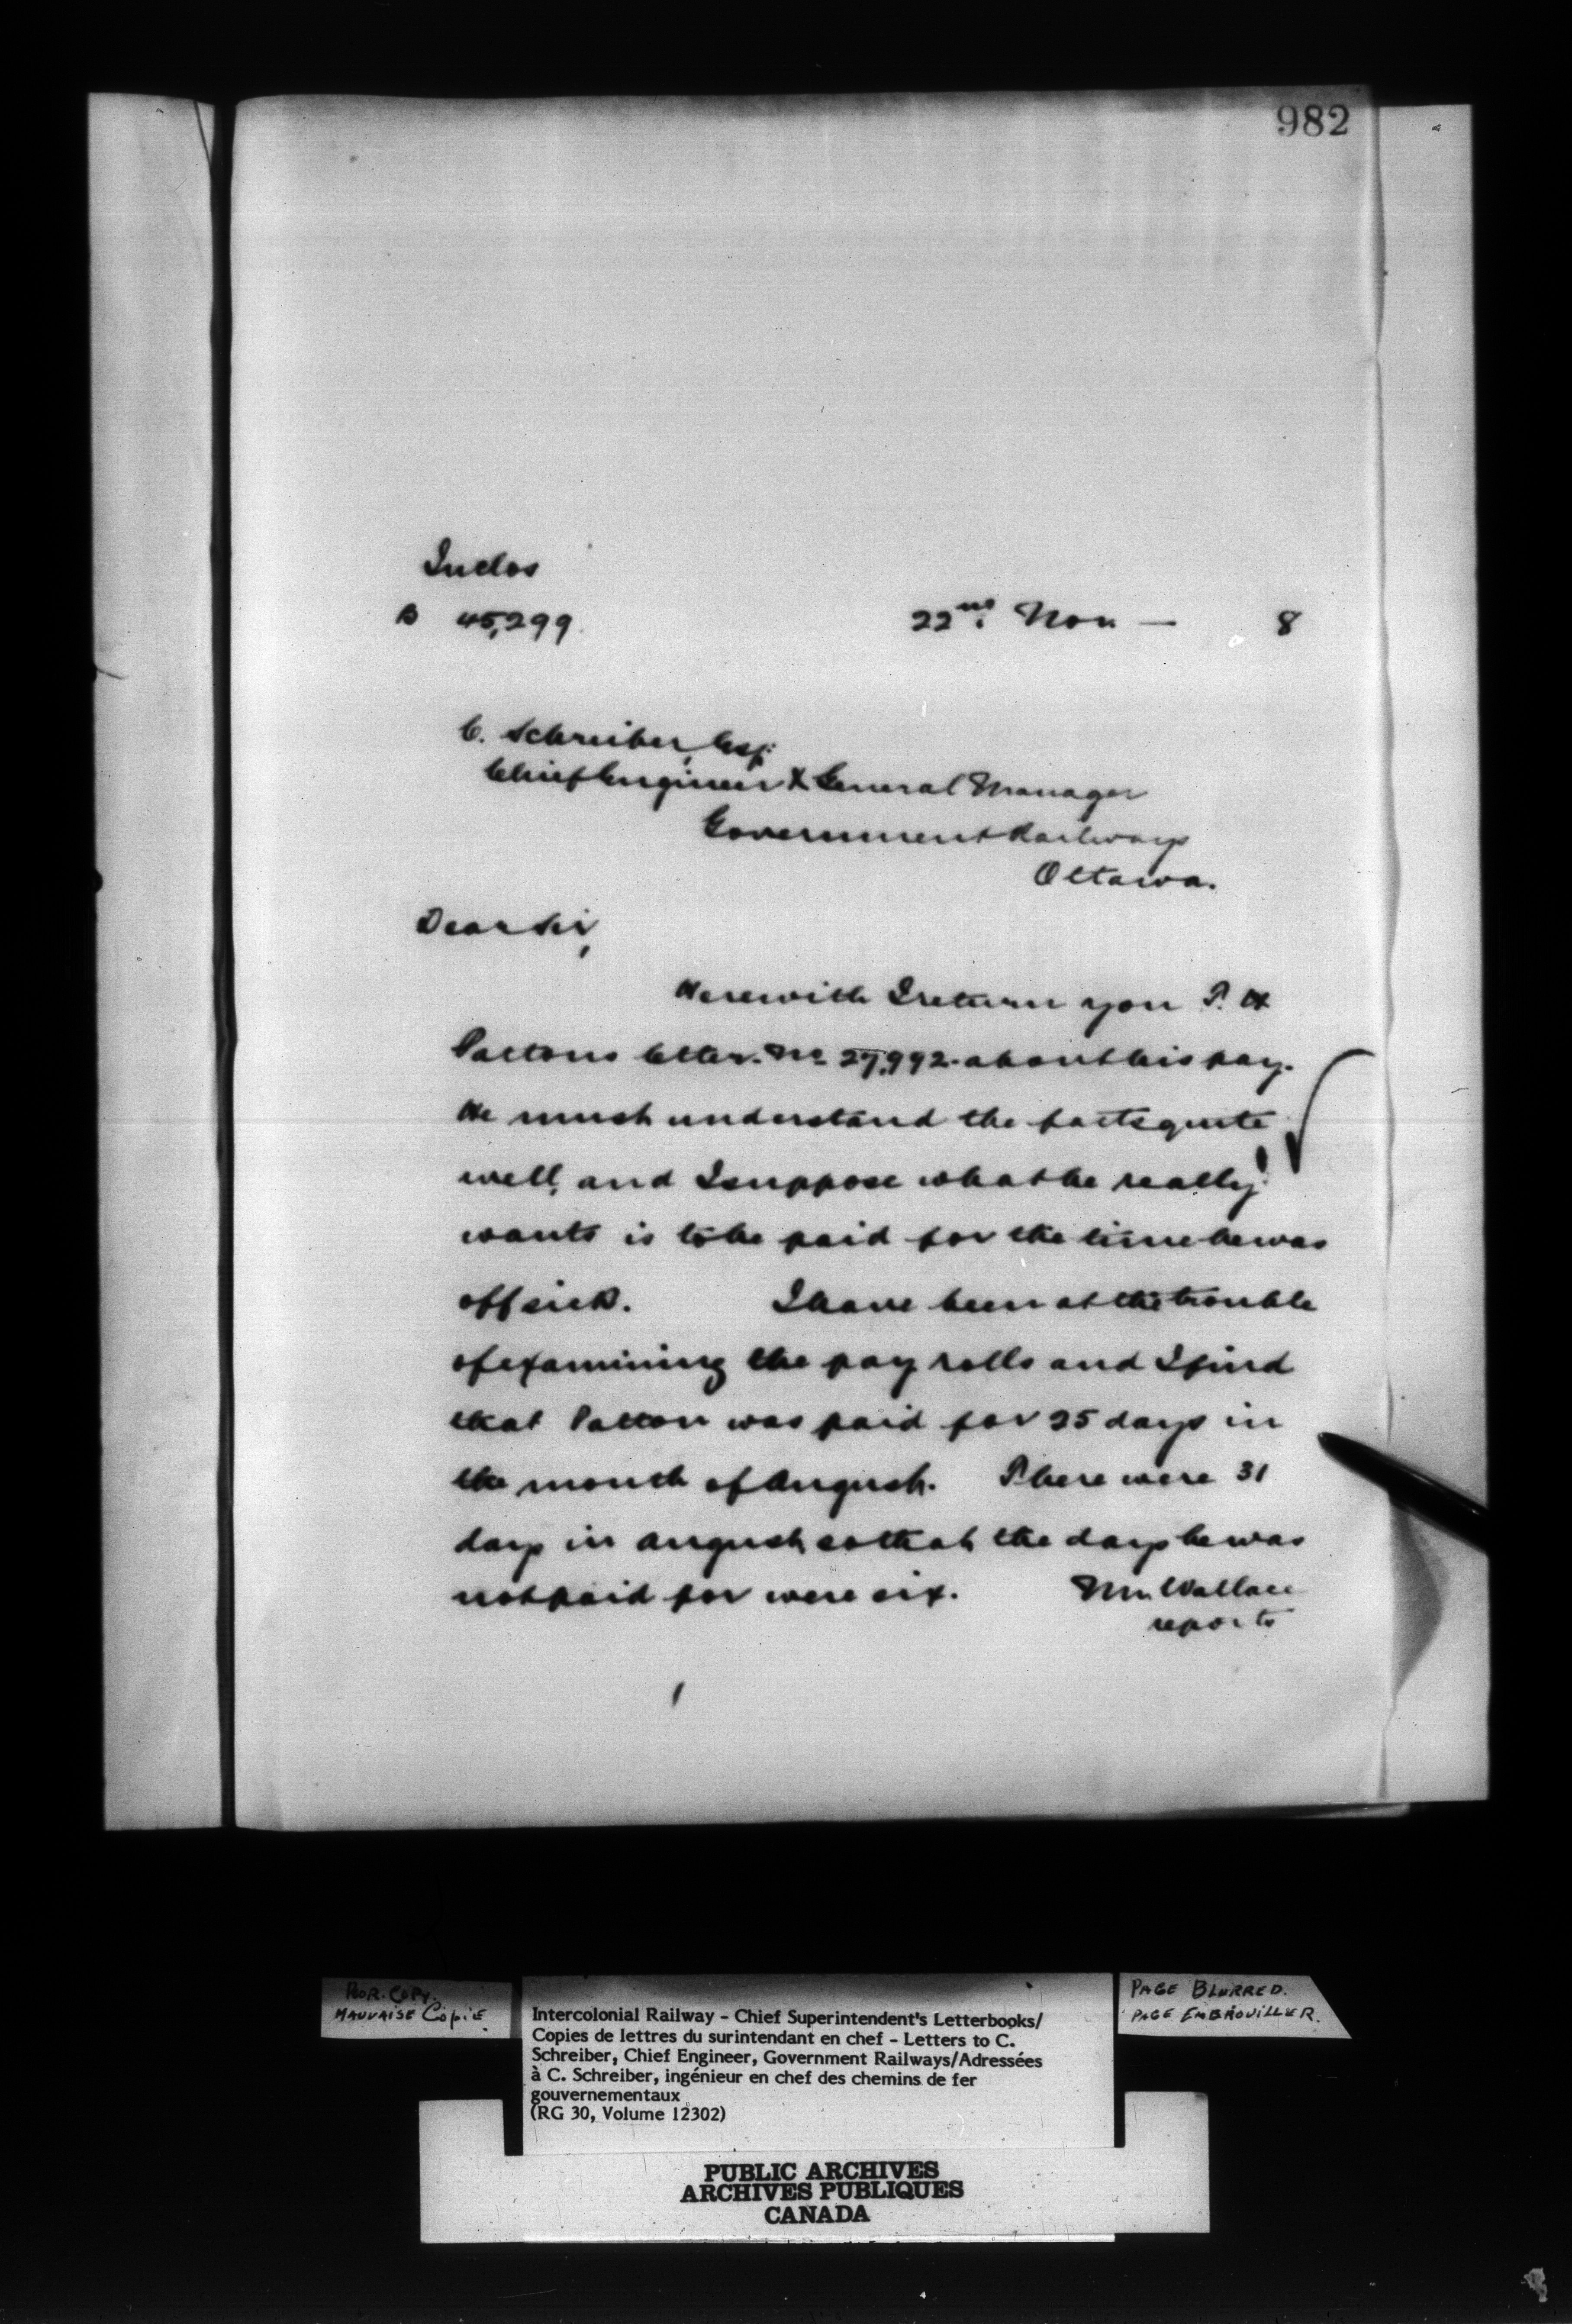 982
Inclos
B 45,299 22nd Nov — 8
C. Schreiber, Esq.
Chief Engineer & General Manager
Government Railways
Ottawa.
Dear Sir,
Herewith I return you P. H
Pattons letter No 27,992 about his pay.
He must understand the facts quite
well, and I suppose what he really
wants is to be paid for the time he was
off sick. I have been at the trouble
of examining the pay rolls and I find
that Patton was paid for 25 days in
the month of August. There were 31
days in August, so that the days he was
not paid for were six. Mr. Wallace
reports
POOR. COPY.
MAUVAISE COPIE
PAGE BLURRED.
PAGE EMBROUILLER.
Intercolonial Railway - Chief Superintendent's Letterbooks/
Copies de lettres du surintendant en chef - Letters to C.
Schreiber, Chief Engineer, Government Railways/Adressées
à C. Schreiber, ingénieur en chef des chemins de fer
gouvernementaux
(RG 30, Volume 12302)
PUBLIC ARCHIVES
ARCHIVES PUBLIQUES
CANADA